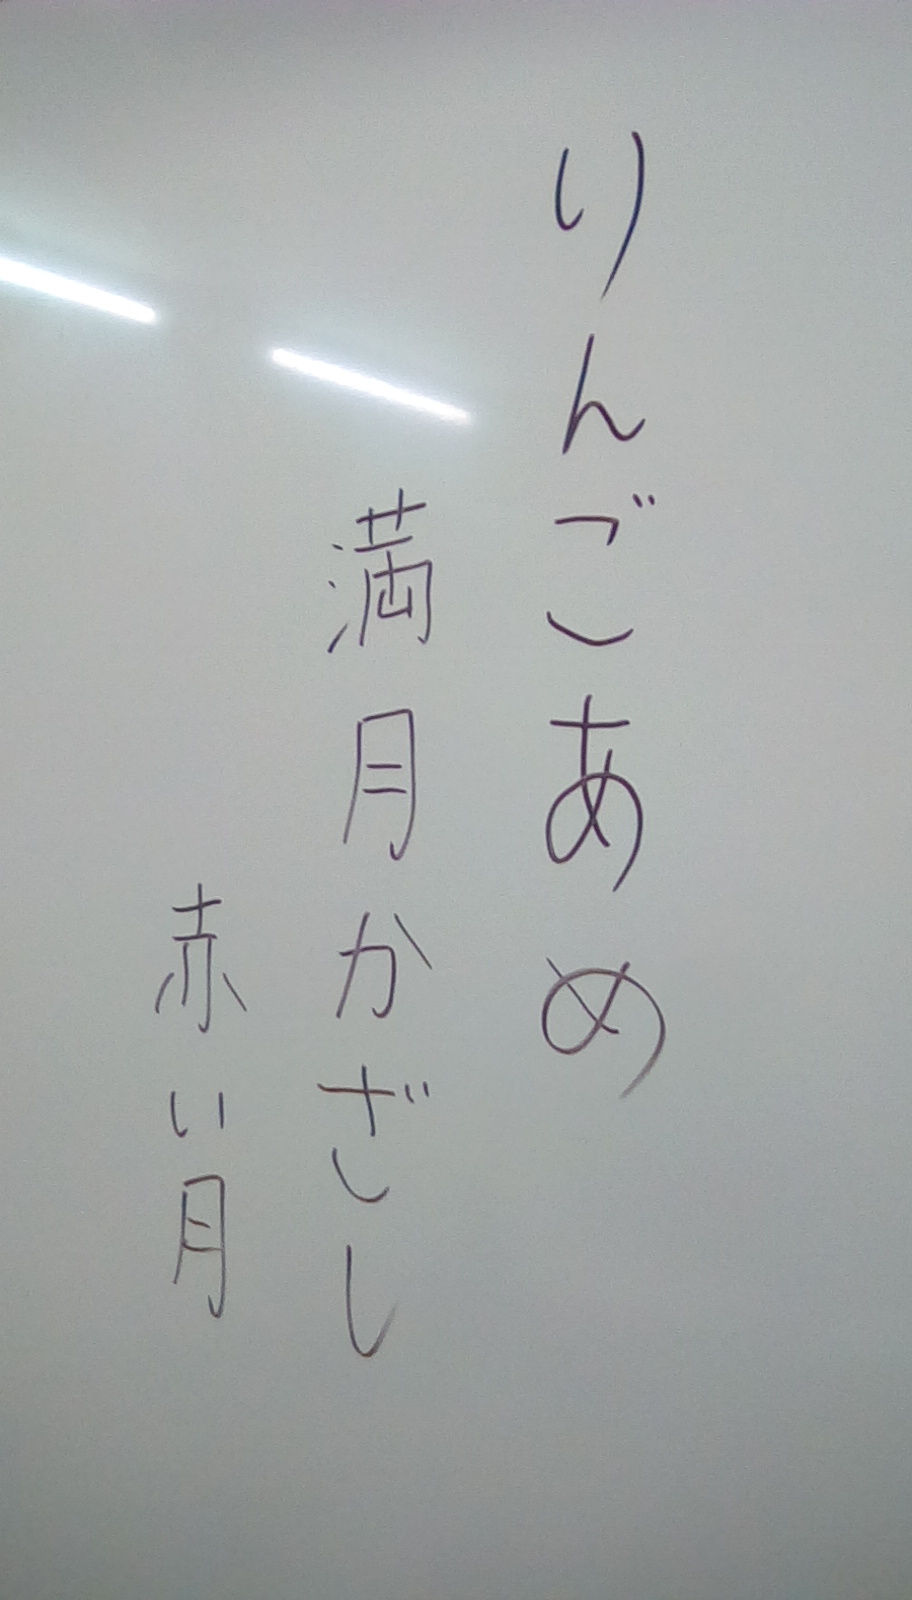 りんごあめ
満月かざし
赤い月